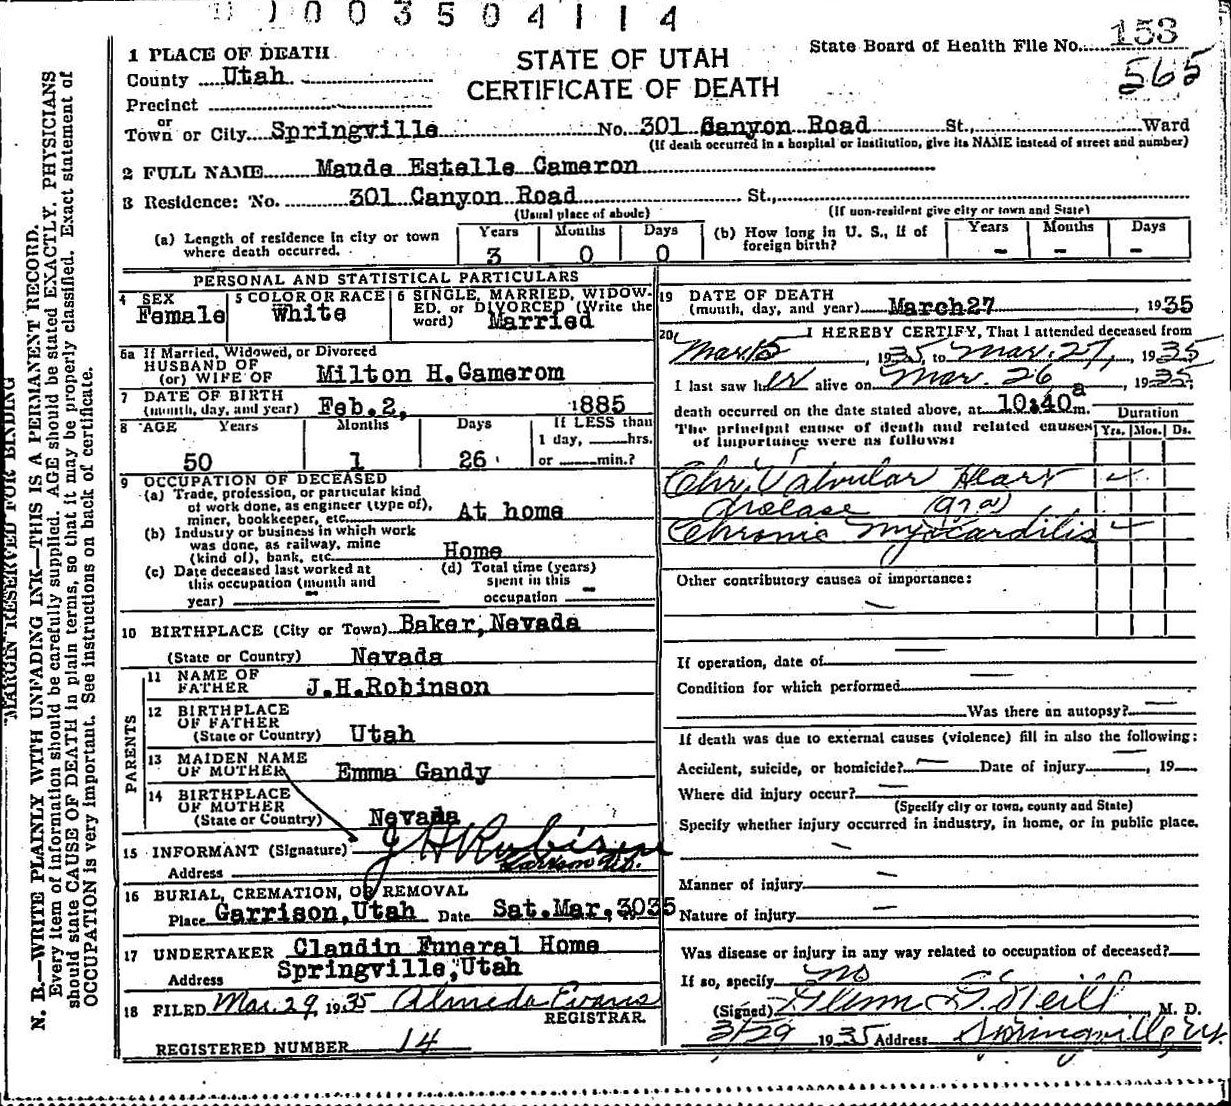 003504114
State Board of Health File No. 153
565
STATE OF UTAH
CERTIFICATE OF DEATH
1 PLACE OF DEATH
County Utah
Precinct
or
Town or City Springville No. 301 Canyon Road St., Ward
(If death occurred in a hospital or institution, give its NAME instead of street and number)
2 FULL NAME Maude Estelle Cameron
3 Residence: No. 301 Canyon Road St.,
(Usual place of abode) (If non-resident give city or town and State)
(a) Length of residence in city or town where death occurred. Years 3 Months 0 Days 0
(b) How long in U. S., if of foreign birth? Years - Months - Days -
PERSONAL AND STATISTICAL PARTICULARS
4 SEX Female
5 COLOR OR RACE White
6 SINGLE, MARRIED, WIDOWED, or DIVORCED (Write the word) Married
6a If Married, Widowed, or Divorced
HUSBAND OF
(or) WIFE OF Milton H.Camerom
7 DATE OF BIRTH
(month, day, and year) Feb.2, 1885
8 AGE Years 50 Months 1 Days 26
If LESS than
1 day, hrs.
or min.?
9 OCCUPATION OF DECEASED
(a) Trade, profession, or particular kind
of work done, as engineer (type of),
miner, bookkeeper, etc. At home
(b) Industry or business in which work
was done, as railway, mine
(kind of), bank, etc. Home
(c) Date deceased last worked at
this occupation (month and
year) -
(d) Total time (years)
spent in this
occupation -
10 BIRTHPLACE (City or Town) Baker, Nevada
(State or Country) Nevada
PARENTS
11 NAME OF
FATHER J.H.Robinson
12 BIRTHPLACE
OF FATHER
(State or Country) Utah
13 MAIDEN NAME
OF MOTHER Emma Gandy
14 BIRTHPLACE
OF MOTHER
(State or Country) Nevada
15 INFORMANT (Signature) J H Robison
Address
16 BURIAL, CREMATION, OR REMOVAL
Place Garrison, Utah Date Sat.Mar, 3035
17 UNDERTAKER Claudin Funeral Home
Address Springville, Utah
18 FILED Mar. 29, 1935 Almeda Evans
REGISTRAR.
REGISTERED NUMBER 14
19 DATE OF DEATH
(month, day, and year) March27 1935
20 I HEREBY CERTIFY, That I attended deceased from
Mar 5, 1935, to Mar. 27, 1935
I last saw her alive on Mar. 26, 1935,
death occurred on the date stated above, at 10:40 a m.
The principal cause of death and related causes
of importance were as follows:
Duration
Yrs. Mos. Ds.
Chr. Valvular Heart
disease (92a)
Chronic Myocarditis
Other contributory causes of importance:
If operation, date of
Condition for which performed
Was there an autopsy?
If death was due to external causes (violence) fill in also the following:
Accident, suicide, or homicide? Date of injury , 19
Where did injury occur?
(Specify city or town, county and State)
Specify whether injury occurred in industry, in home, or in public place.
Manner of injury
Nature of injury
Was disease or injury in any way related to occupation of deceased?
If so, specify no
(Signed) Glenn G. O'Neill M. D.
3/29 1935 Address Springville, Ut.
MARGIN RESERVED FOR BINDING
N. B.—WRITE PLAINLY WITH UNFADING INK—THIS IS A PERMANENT RECORD.
Every item of information should be carefully supplied. AGE should be stated EXACTLY. PHYSICIANS
should state CAUSE OF DEATH in plain terms, so that it may be properly classified. Exact statement of
OCCUPATION is very important. See instructions on back of certificate.